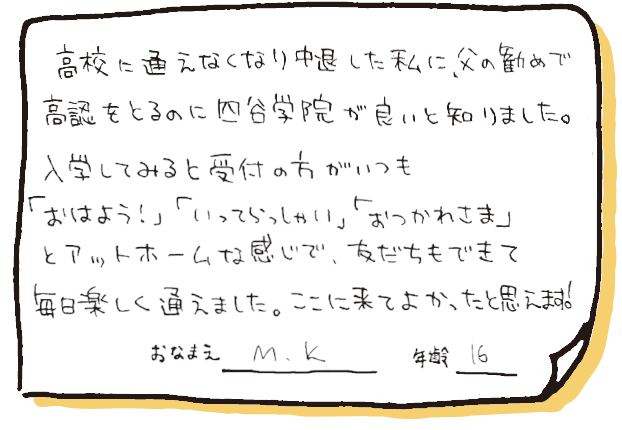 高校に通えなくなり中退した私に、父の勧めで
高認をとるのに四谷学院が良いと知りました。
入学してみると受付の方がいつも
「おはよう!」「いってらっしゃい」「おつかれさま」
とアットホームな感じで、友だちもできて
毎日楽しく通えました。ここに来てよかったと思えます!
おなまえ M.K 年齢 16